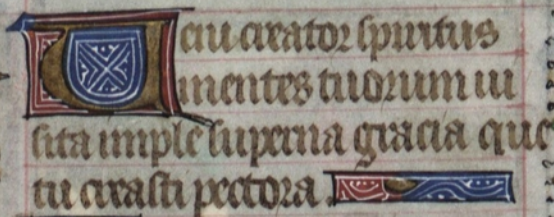 Ueni creator spiritus
mentes tuorum ui
sita imple superna gracia que
tu creasti pectora.